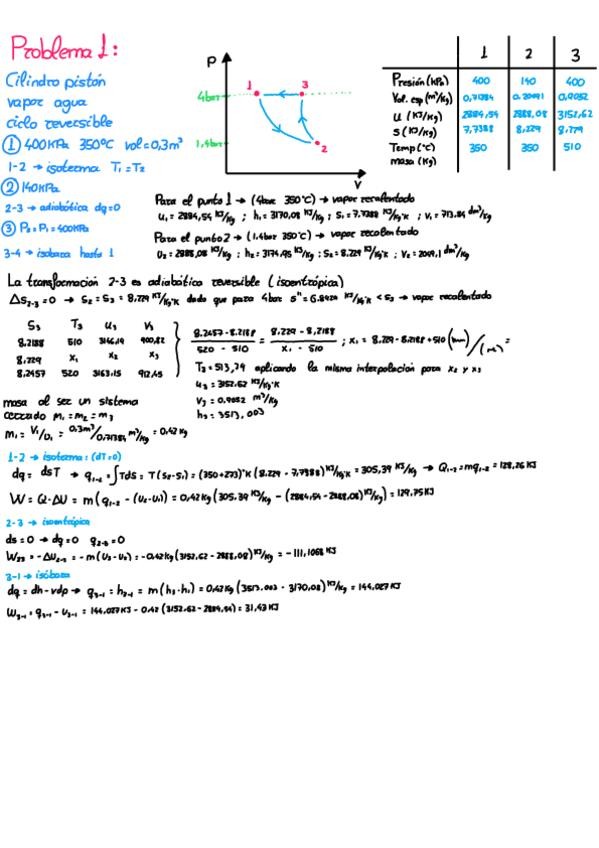 Problema 1:
Cilindro pistón
vapor agua
ciclo reversible
① 400 KPa 350°C vol=0,3m³
1-2 → isoterma T₁=T₂
② 140KPa
2-3 → adiabática dq=0
③ P₃=P₁=400KPa
3-4 → isobara hasta 1
P
4bar
1,4bar
1
3
2
V
1 2 3
Presión (KPa) 400 140 400
Vol. esp (m³/Kg) 0,71384 0,9052
U (KJ/Kg) 2884,54 2888,08 3152,62
S (KJ/Kg) 7,7388 8,229 8,229
Temp (°C) 350 350 510
masa (Kg)
Para el punto 1 → (4bar 350°C) → vapor recalentado
u₁ = 2884,54 KJ/Kg ; h₁ = 3170,08 KJ/Kg ; s₁ = 7,7388 KJ/Kg·K ; v₁ = 713,84 dm³/Kg
Para el punto 2 → (1,4bar 350°C) → vapor recalentado
u₂ = 2888,08 KJ/Kg ; h₂ = 3174,95 KJ/Kg ; s₂ = 8,229 KJ/Kg·K ; v₂ = 2049,1 dm³/Kg
La transformación 2-3 es adiabática reversible (isoentrópica)
Δs₂₋₃=0 → s₂ = s₃ = 8,229 KJ/Kg·K dado que para 4bar s" = 6.8924 KJ/Kg·K < s₃ → vapor recalentado
S₃ T₃ u₃ v₃
8.2188 510 3146,19 900,82
8.229 x₁ x₂ x₃
8.2457 520 3163,15 912,45
8.2457 - 8.2188 / 520 - 510 = 8,229 - 8,2188 / x₁ - 510 ; x₁ = 8,229 - 8,2188 + 510
T₃ = 513,79 aplicando la misma interpolación para x₂ y x₃
u₃ = 3152.62 KJ/Kg·K
v₃ = 0.9052 m³/Kg
h₃ = 3513,003
masa al ser un sistema
cerrado m₁ = m₂ = m₃
m₁ = V₁/v₁ = 0,3m³/0,71384 m³/Kg = 0,42 Kg
1-2 → isoterma: (dT=0)
dq = dsT → q₁₋₂ = ∫Tds = T(s₂-s₁) = (350+273)°K (8,229 - 7,7388) KJ/Kg·K = 305,39 KJ/Kg → Q₁₋₂ = mq₁₋₂ = 128,26 KJ
W = Q-ΔU = m(q₁₋₂ - (u₂-u₁)) = 0,42 Kg (305,39 KJ/Kg - (2884,54 - 2888,08) KJ/Kg) = 129,75 KJ
2-3 → isoentrópica
ds = 0 → dq = 0 q₂₋₃ = 0
W₂₃ = -ΔU₂₋₃ = -m(u₃-u₂) = -0,42Kg (3152,62 - 2888,08) KJ/Kg = -111,1068 KJ
3-1 → isóbara
dq = dh - vdp → q₃₋₁ = h₃₋₁ = m(h₃-h₁) = 0,42Kg (3513.003 - 3170,08) KJ/Kg = 144,027 KJ
W₃₋₁ = q₃₋₁ - u₃₋₁ = 144,027 KJ - 0,42 (3152,62 - 2884,54) KJ/Kg = 31,43 KJ